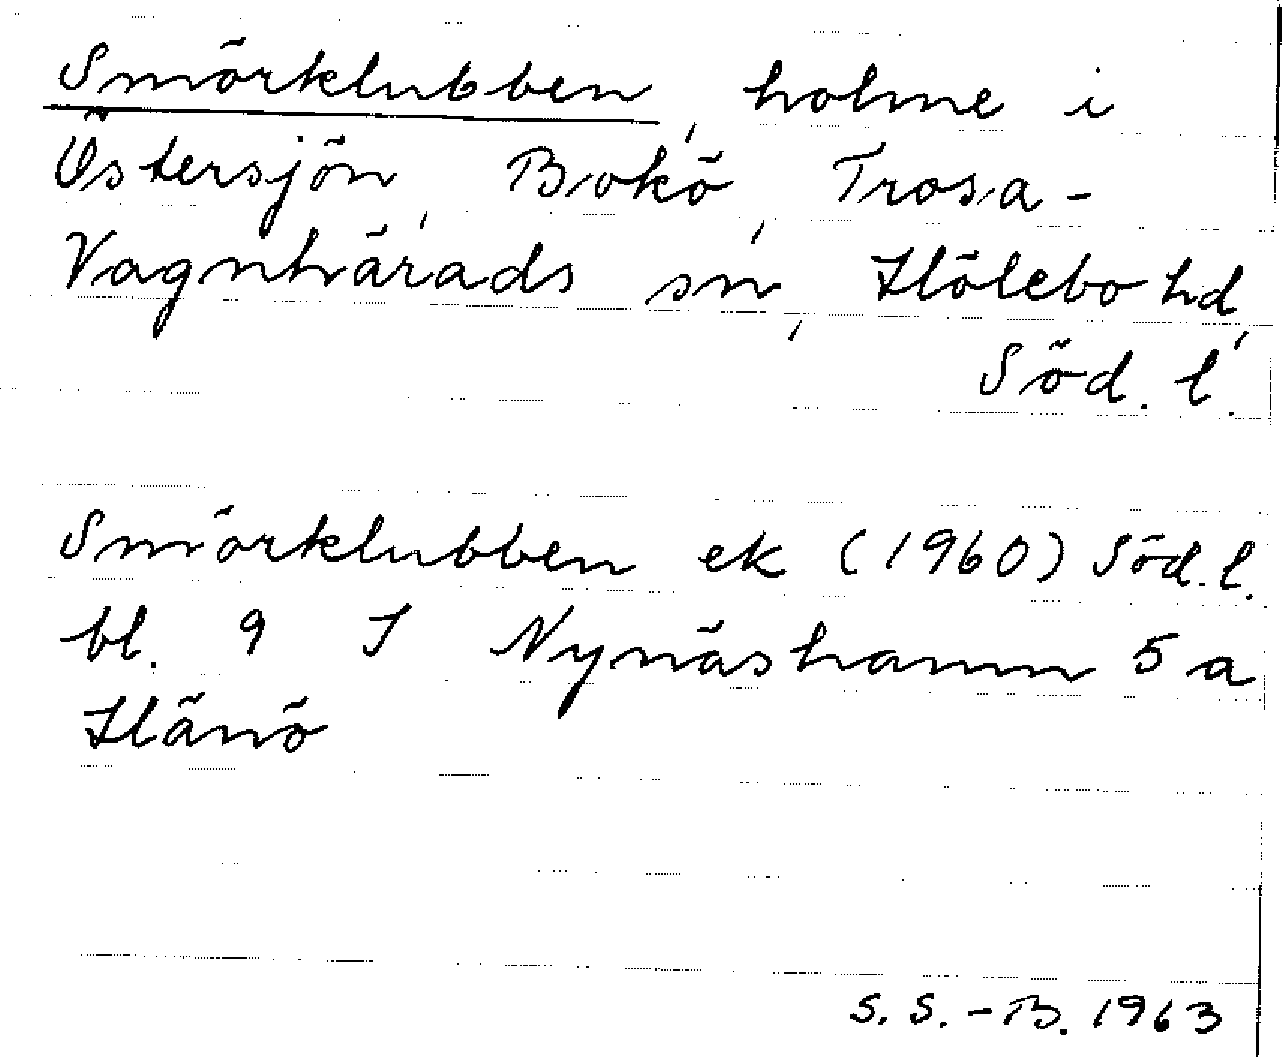 Smörklubben, holme i
Östersjön, Bokö, Trosa-
Vagnhärads sn, Hölebo hd,
Söd. l.
Smörklubben ek (1960) Söd. l.
bl. 9 J Nynäshamn 5 a
Hänö
S. S.-B. 1963